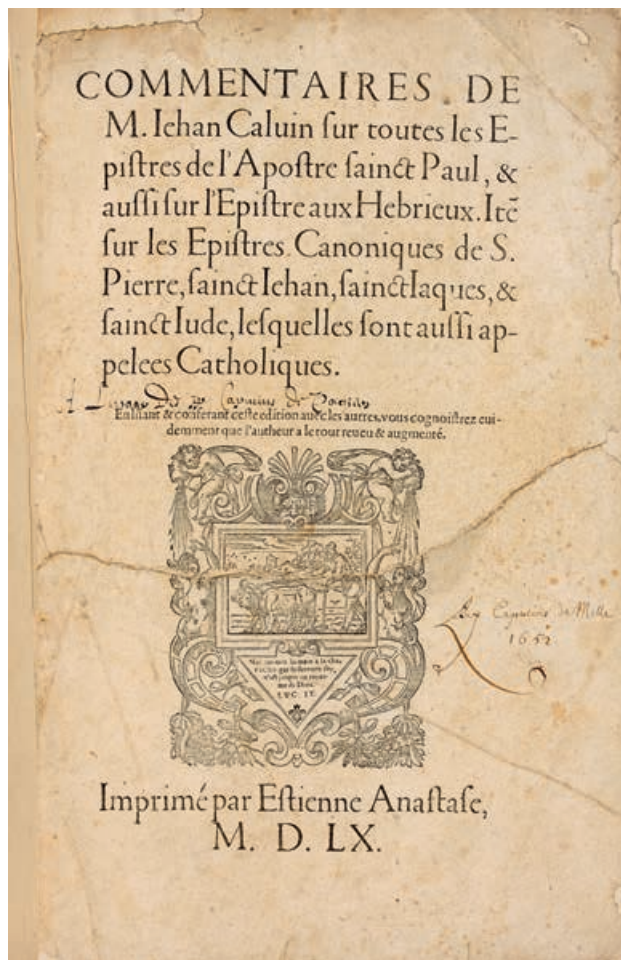 COMMENTAIRES DE
M. Iehan Caluin ſur toutes les E-
piſtres de l'Apoſtre ſainct Paul, &
auſſi ſur l'Epiſtre aux Hebrieux. Itē
ſur les Epiſtres Canoniques de S.
Pierre, ſainct Iehan, ſainct Iaques, &
ſainct Iude, leſquelles ſont auſſi ap-
pelees Catholiques.
En liſant & conferant ceſte edition auec les autres, vous cognoiſtrez eui-
demment que l'autheur a le tout reueu & augmenté.
Capucins de
1652
LVC IX.
Imprimé par Eſtienne Anaſtaſe,
M. D. LX.